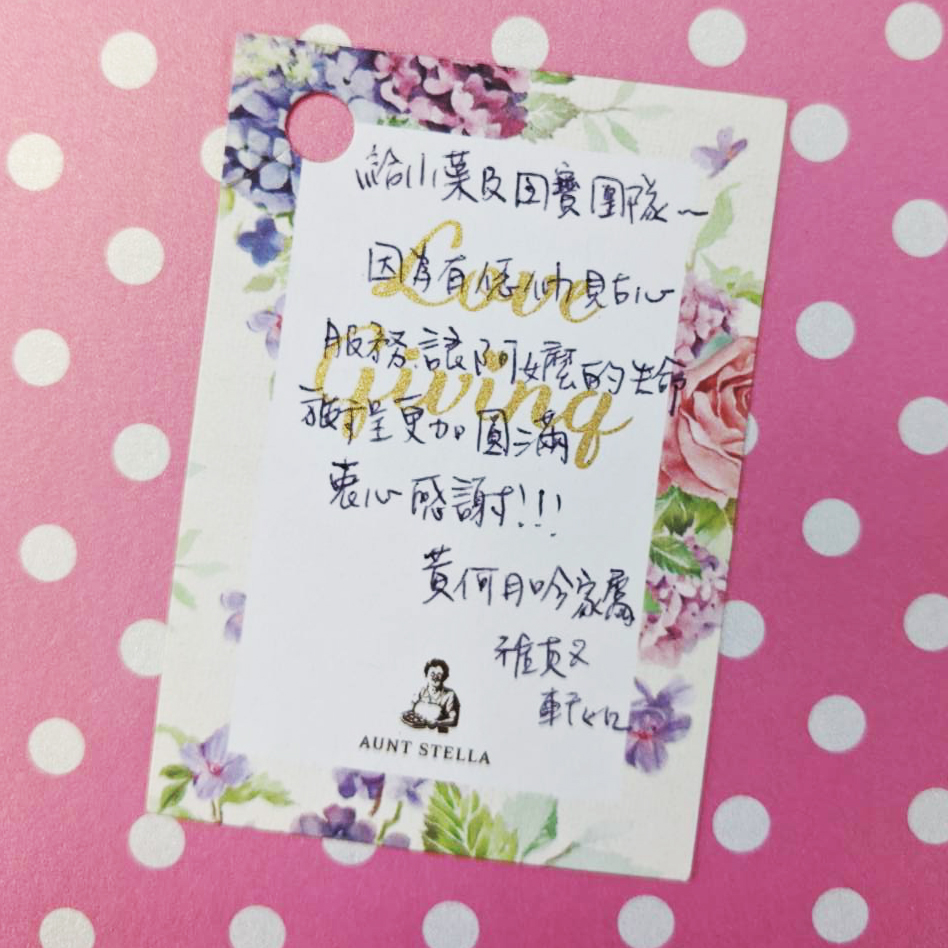 給小葉及国寶團隊~
因為有您們貼心
服務,讓阿嬤的生命
旅程更加圓滿
衷心感謝!!!
黃何月吟家屬
雅
軒如
Love
Giving
AUNT STELLA